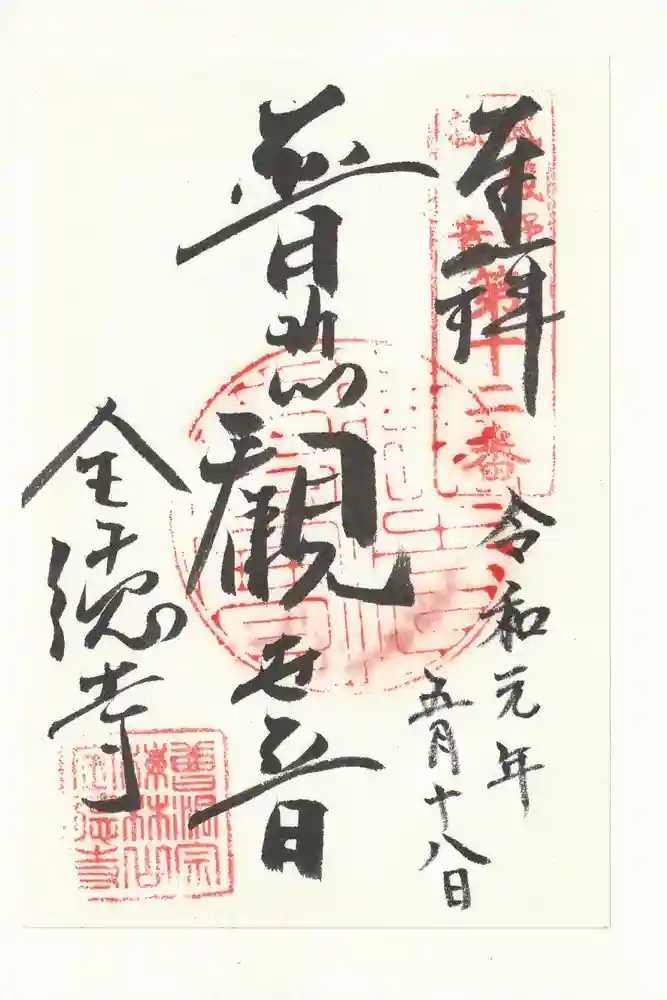 拝
武蔵野
観音
第十二番
令和元年
五月十八日
普悲觀世音
全徳寺
曹洞宗